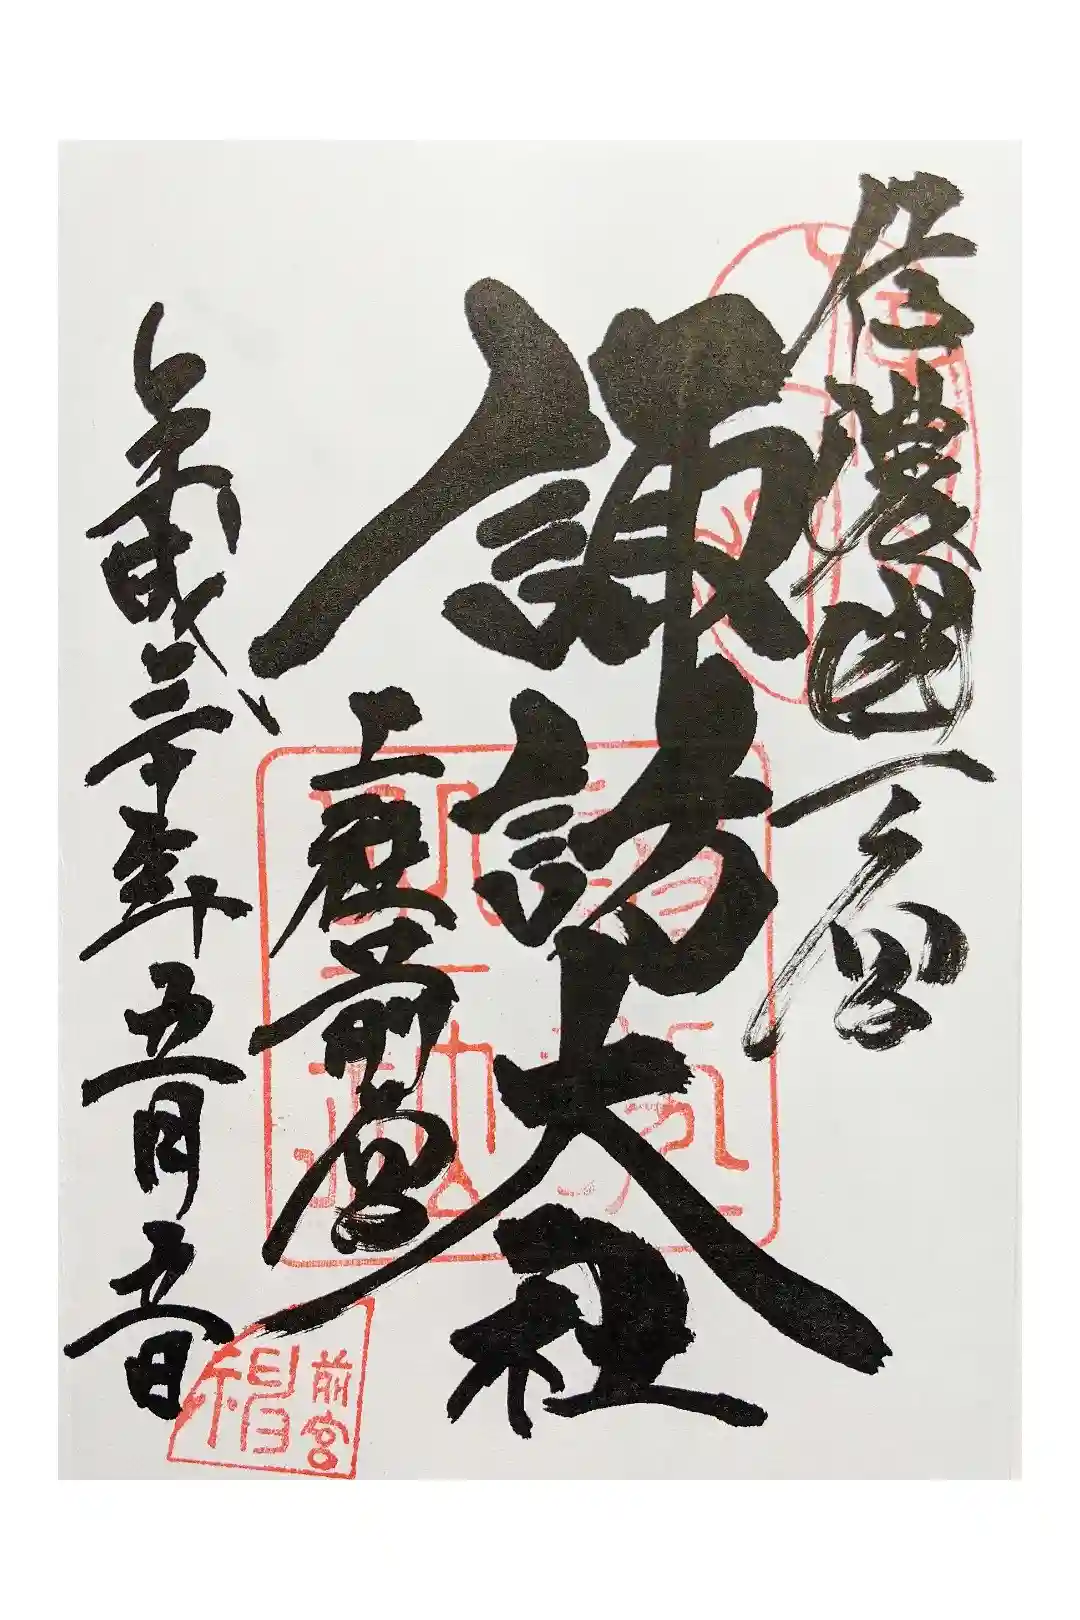 信濃國一宮
諏訪大社
上社前宮
平成三十年五月五日
前宮